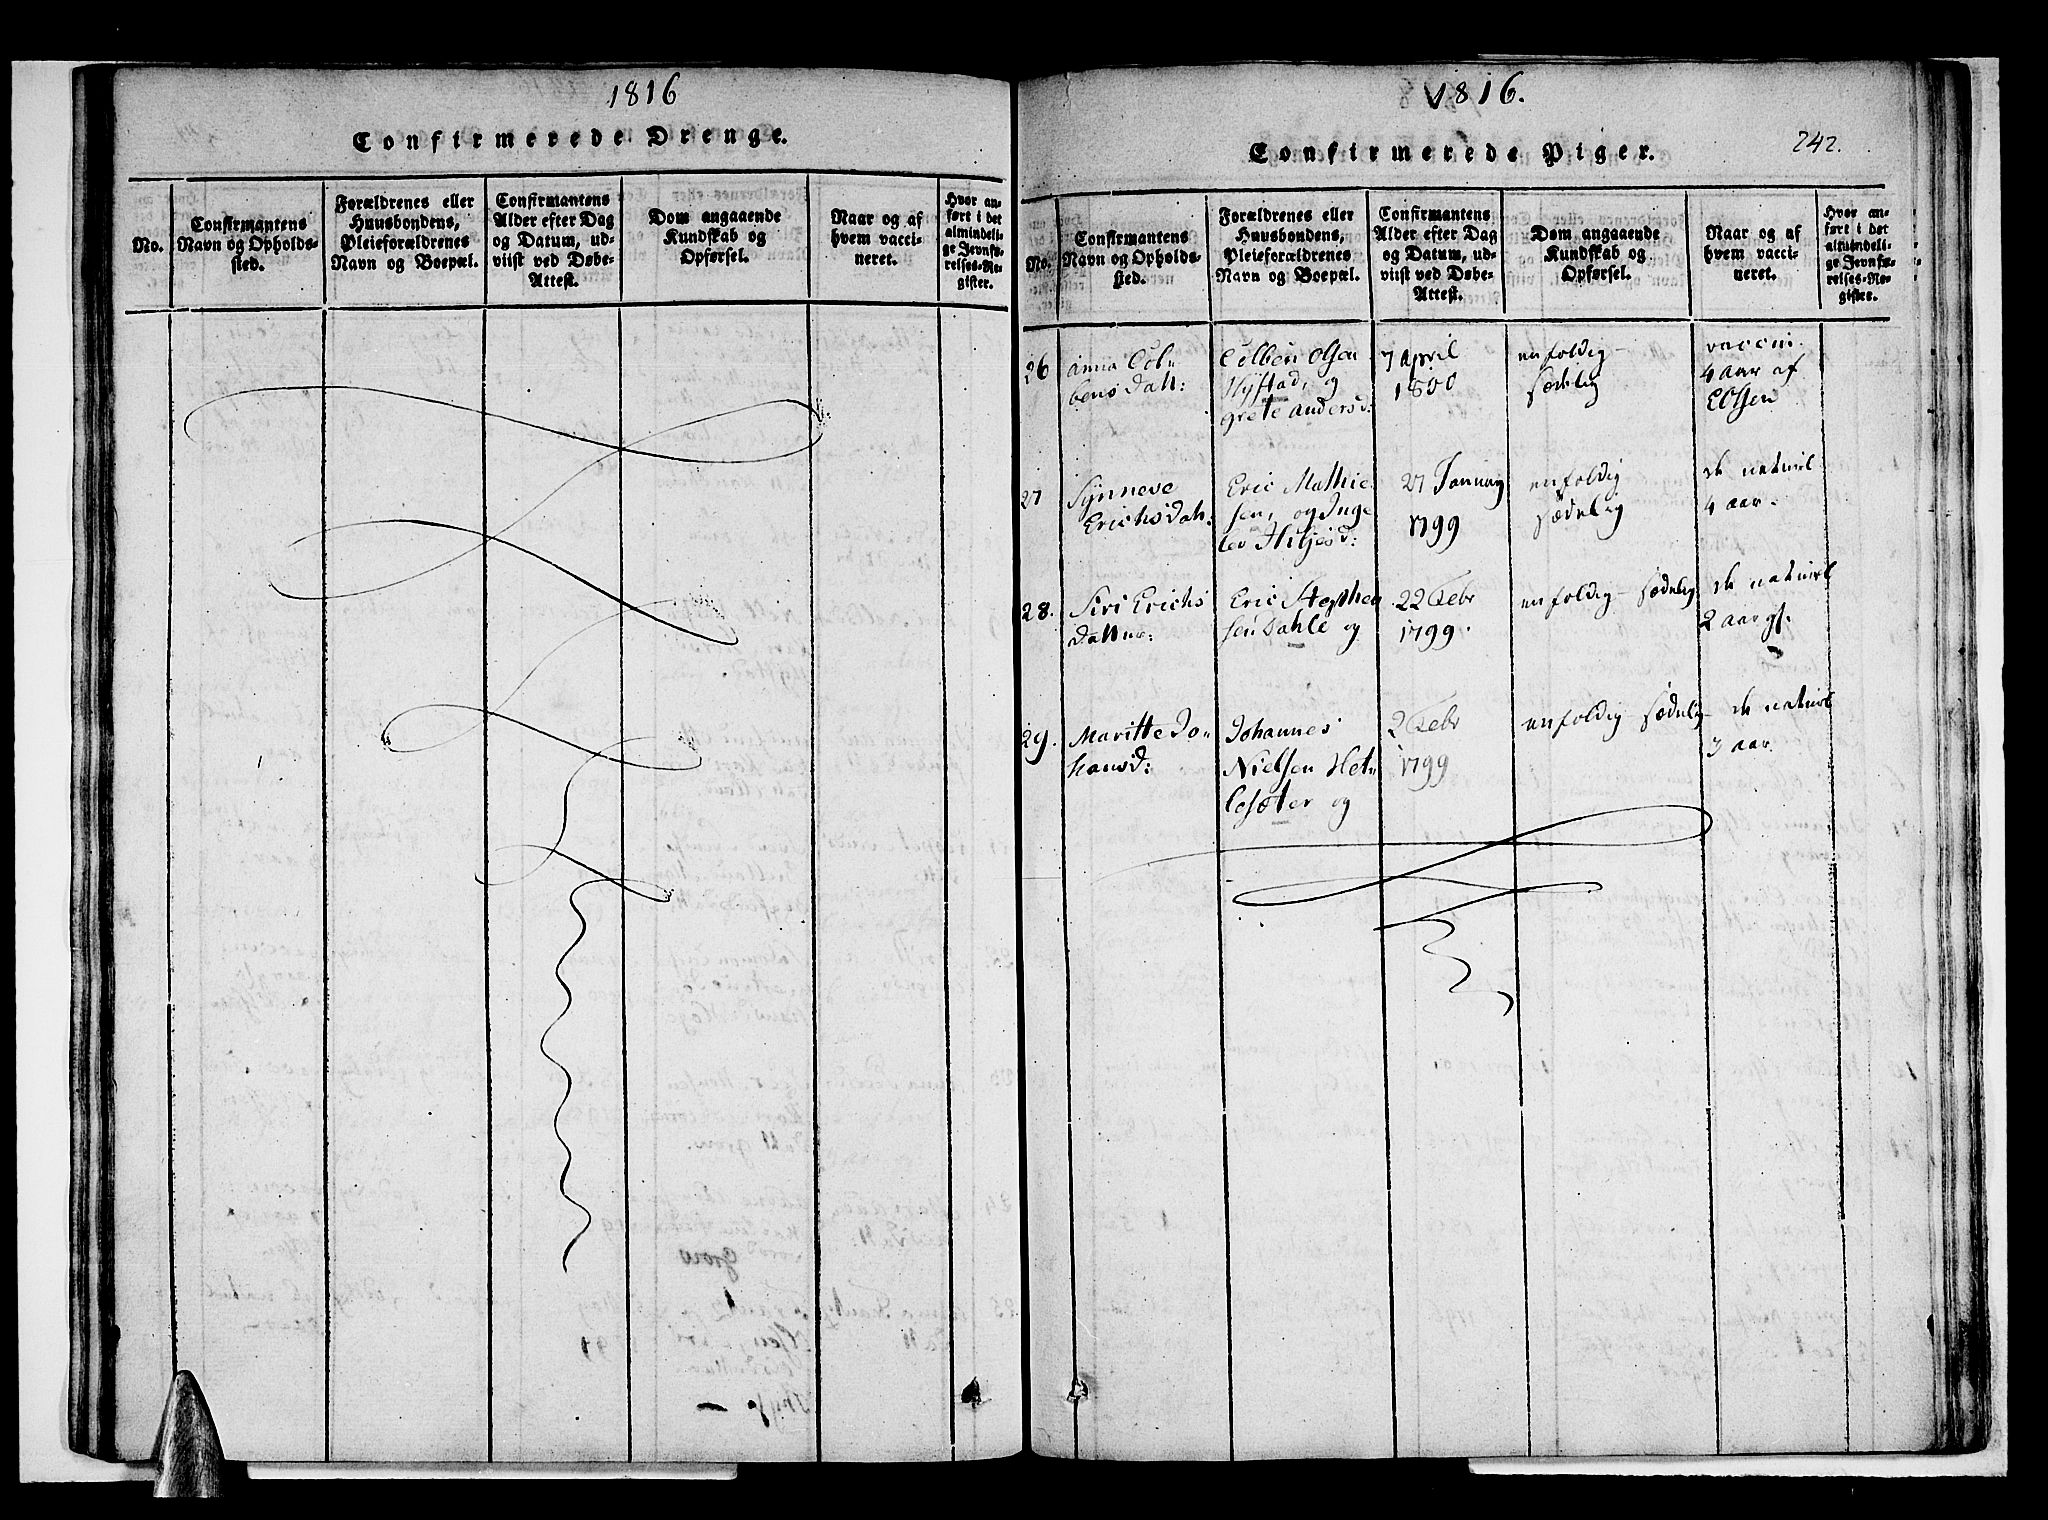 1816
Confirmerede Drenge.
No.
Confirmantens
Navn og Opholds-
sted.
Forældrenes eller
Huusbondens,
Pleieforældrenes
Navn og Boepæl.
Confirmantens
Alder efter Dag
og Datum, ud-
viist ved Døbe-
Attest.
Dom angaaende
Kundskab og
Opførsel.
Naar og af
hvem vacci-
neret.
Hvor an-
ført i det
almindeli-
ge Jevnfø-
relses-Re-
gister.
1816.
Confirmerede Piger.
242.
No.
Confirmantens
Navn og Opholds-
sted.
Forældrenes eller
Huusbondens,
Pleieforældrenes
Navn og Boepæl.
Confirmantens
Alder efter Dag
og Datum, ud-
viist ved Døbe-
Attest.
Dom angaaende
Kundskab og
Opførsel.
Naar og af
hvem vacci-
neret.
Hvor an-
ført i det
almindeli-
ge Jevnfø-
relses-Re-
gister.
26
Anna Col-
bens Datt:
Colben Olsen
Hystad, og
Grete Andersd:
7 April
1800
enfoldig -
sædelig
vaccin.
4 aar af
E Olsen
27
Synneve
Erichsdatt:
Eric Mathie
sen, og Inge
27 Januay
1799
enfoldig
sædelig
de naturl
4 aar.
28.
Siri Erichs
datter:
Eric Stephen
sen Dahle og
22 Febr
1799.
enfoldig - sædelig
de naturl
2 aar gl.
29.
Maritte Jo-
hansd:
Johannes
Nielsen Het-
lesæter og
2 Febr
1799
enfoldig sædelig -
de naturl
3 aar